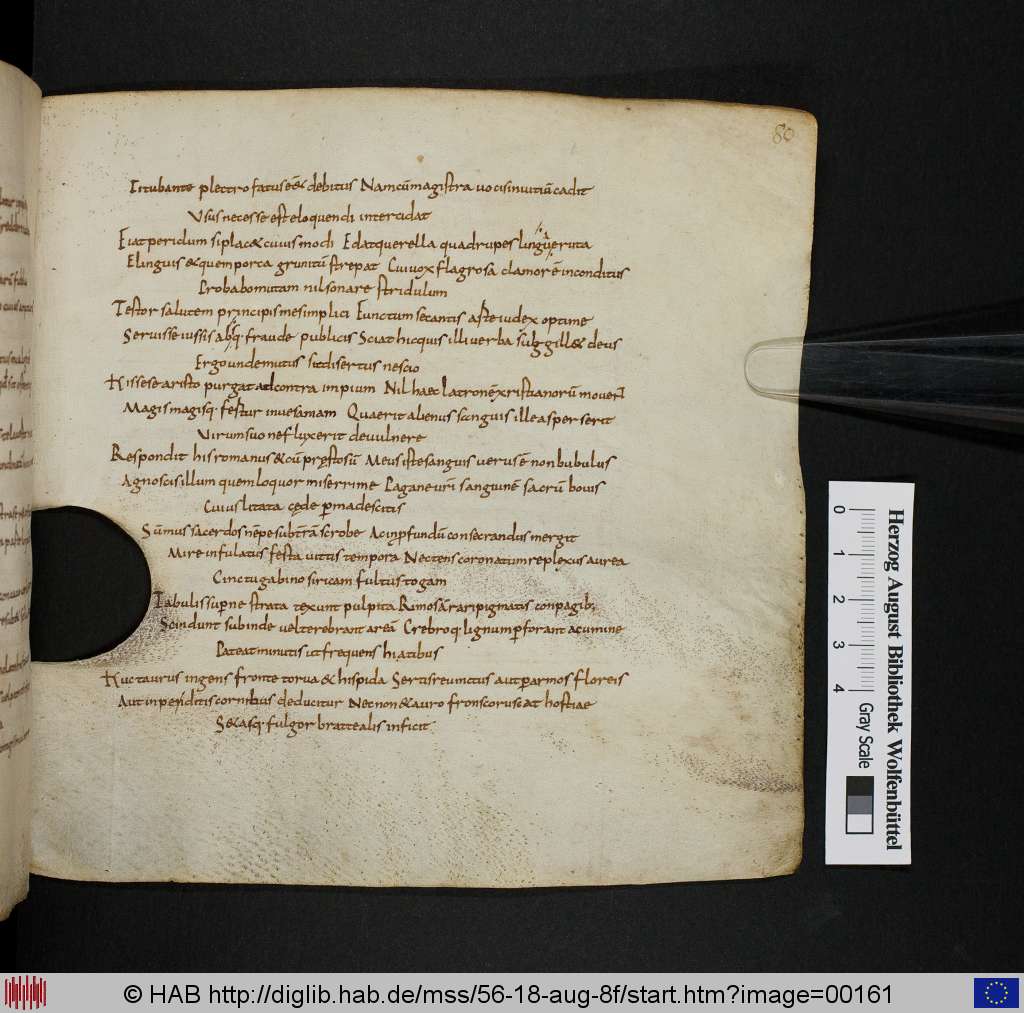 80
Titubante plectro fatuse& debitus Namcūmagistra uocisinuitiūcadit
Vsus necesse est eloquendi intercidat
Fiat periclum siplac& cuiusmodi Edatquerella quadrupes linguaeruta
Elinguis &quem porca grunitū strepat Cuiuox flagrosa clamorē inconditus
Probabo mutam nil sonare stridulum
Testor salutem principis mesimplici Functum secantis arte iudex optime
Seruisse iussis absq; fraude publicis Sciat hicquis illi uerba suggill& deus
Ergo undemutus sitdisertus nescio
His sese aristo purgat ad contra impium Nil haec latronē xristianorū mouer
Magis magisq; fertur inuesaniam Quaerit alienus sanguis ille asperserit
Virum suo nef luxerit deuulnere
Respondit his romanus &cū pręstosū Meus iste sanguis uerus ē non bubulus
Agnoscis illum quem loquor miserrime Pagane uri sanguinē sacrū bouis
Cuius litata cęde pmadescitis
Sūmus sacerdos nēpe subtrā scrobe Acta inpfundū consecrandus mergit
Mire infulatus festa uittis tempora Nectens corona tum replexus aurea
Cinctu gabino siricam fultus togam
Tabulis supne strata texunt pulpita Rimosa rari pigmatis conpagib;
Scindunt subinde uel terebrant areā Crebroq; lignum pforant acumine
Pateat minutis ut frequens hiatibus
Huc taurus ingens fronte torua & hispida Sertis reuinctus aut parmos floreis
Aut inpeditis cornibus deducitur Necnon & auro frons coruscat hostiae
S&asq; fulgor brattealis inficit
0
1
2
3
4
Herzog August Bibliothek Wolfenbüttel
Gray Scale
© HAB http://diglib.hab.de/mss/56-18-aug-8f/start.htm?image=00161